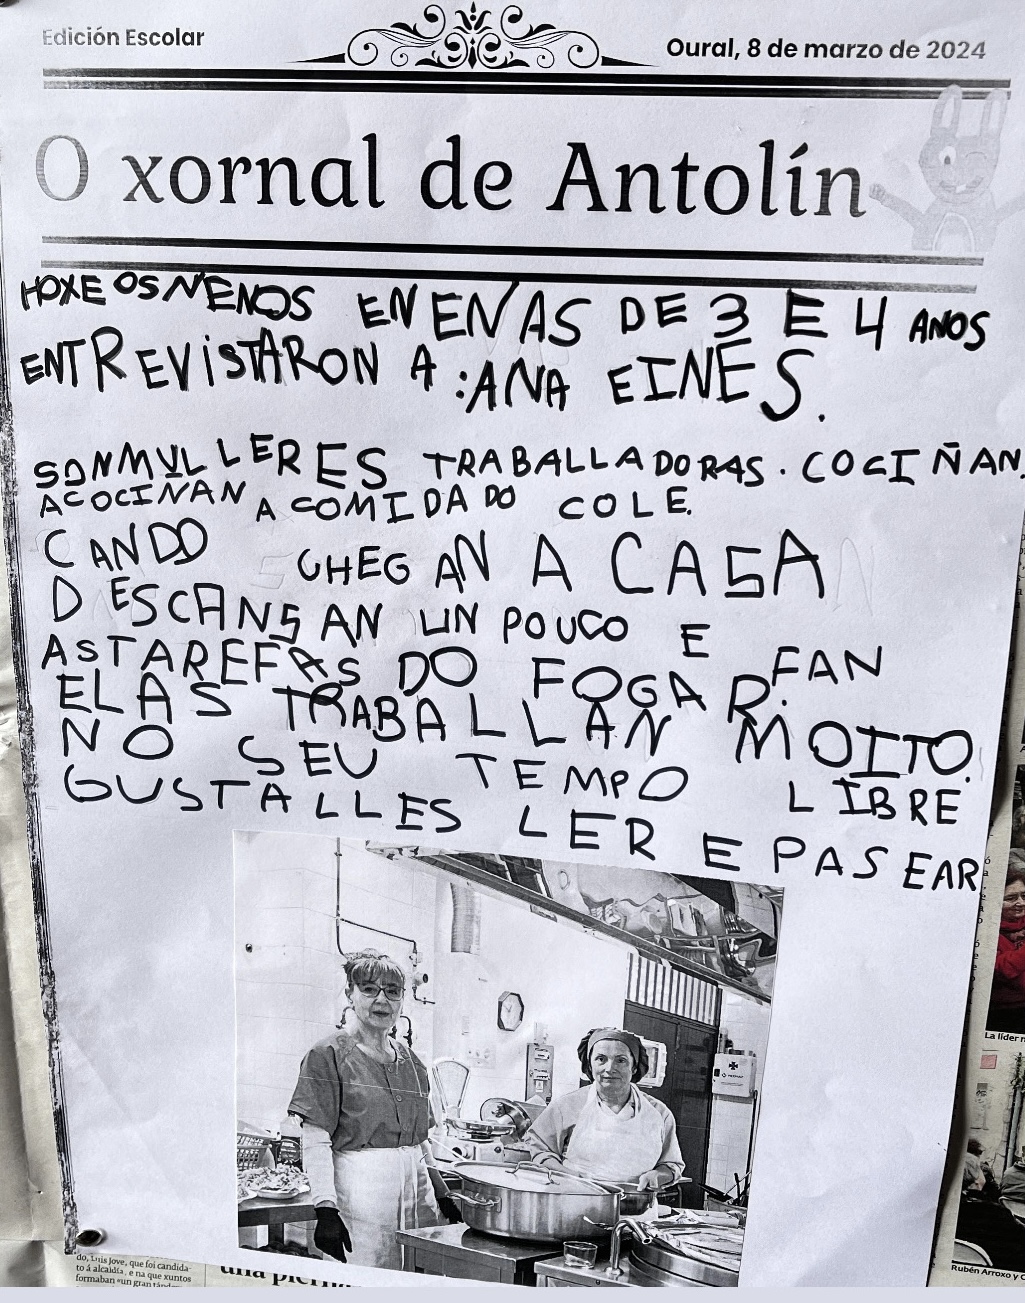 Edición Escolar
Oural, 8 de marzo de 2024
O xornal de Antolín
HOXE OS NENOS E NENAS DE 3 E 4 ANOS
ENTREVISTARON A :ANA E INES.
SON MULLERES TRABALLADORAS. COCIÑAN.
ACOCINAN A COMIDA DO COLE.
CANDO CHEGAN A CASA
DESCANSAN UN POUCO E FAN
AS TAREFAS DO FOGAR.
ELAS TRABALLAN MOITO.
NO SEU TEMPO LIBRE
GUSTALLES LER E PASEAR
La líder
do, Luis Jove, que foi candida-
to á alcaldía, e na que xuntos
formaban «un gran
una
Rubén Arroxo y